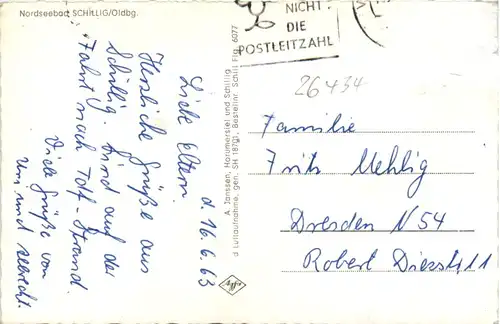 Nordseebad SCHILLIG/Oldbg.
NICHT
DIE
POSTLEITZAHL
26434
d. 16.6.63
Liebe Eltern.
Herzliche Grüße aus
Schillig. Sind auf der
Fahrt nach Tott-Strand.
Viele Grüße von
A. Janssen, Horumersiel und Schillig
d Luftaufnahme, gen. SH 187(g), Bestellnr. Schil. Flg. 6077
Agfa
Familie
Fritz Mehlig
Dresden N 54
Robert Diezstr. 11